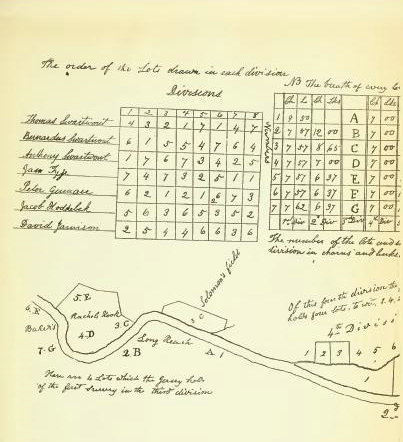 The order of the Lots drawn in each division
NB The breath of every Lo
Divisions
1 2 3 4 5 6 7 8
Thomas Swartwout 4 3 2 1 7 1 4 7
Bernardus Swartwout 6 1 5 5 4 7 6 4
Anthony Swartwout 1 7 6 7 3 4 2 5
Jam Tyse 7 4 7 3 2 5 1 1
Peter Guimar 6 2 1 2 1 6 7 3
Jacob Hoddebek 5 6 3 6 5 3 5 2
David Jamison 2 5 4 4 6 6 3 6
Ch L Ch Lks Ch Lks
1 9 50 A 7 00
2 7 57 12 00 B 7 00
3 7 57 8 65 C 7 00
4 7 57 7 00 D 7 00
5 7 57 6 37 E 7 00
6 7 57 6 37 F 7 00
7 7 62 6 37 G 7 00
1st Div 2d Div 3d Div 4th Div
The number of the lots and
division in chains and links
Solomon's field
Of this fourth division the
holds four lots, to wit, 1.4.
4th Divisi
5.E
6.F
Rachel Hook
3 C
3 C
Bakers
4.D
Long Reach
7.G
2 B
A 1
1 2 3 4 5 6
1
2d
Here are 4 Lots which the Jersey hols
of the first survey in the third division